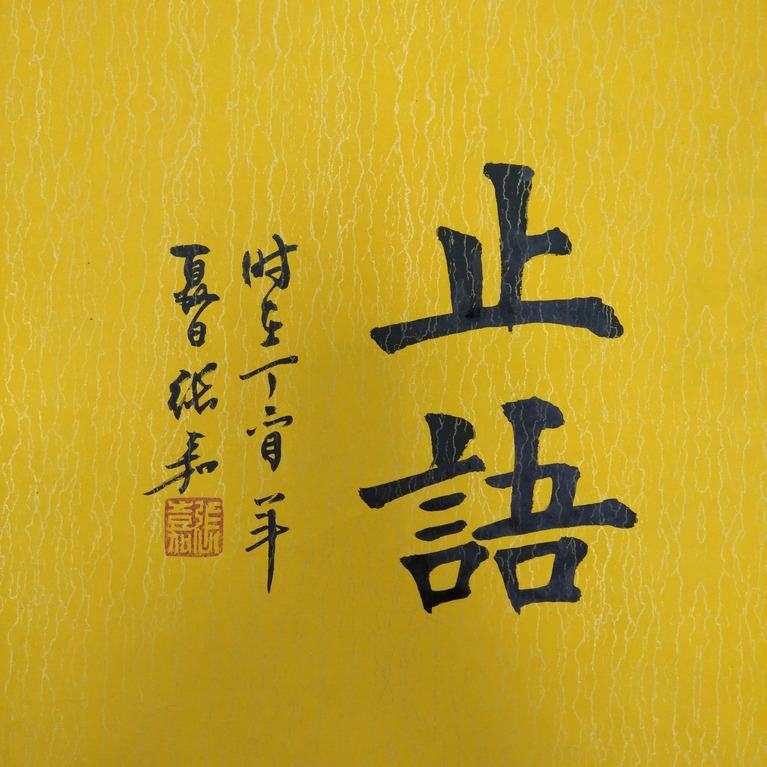 止語
时在丁酉年
夏日张嘉
張嘉